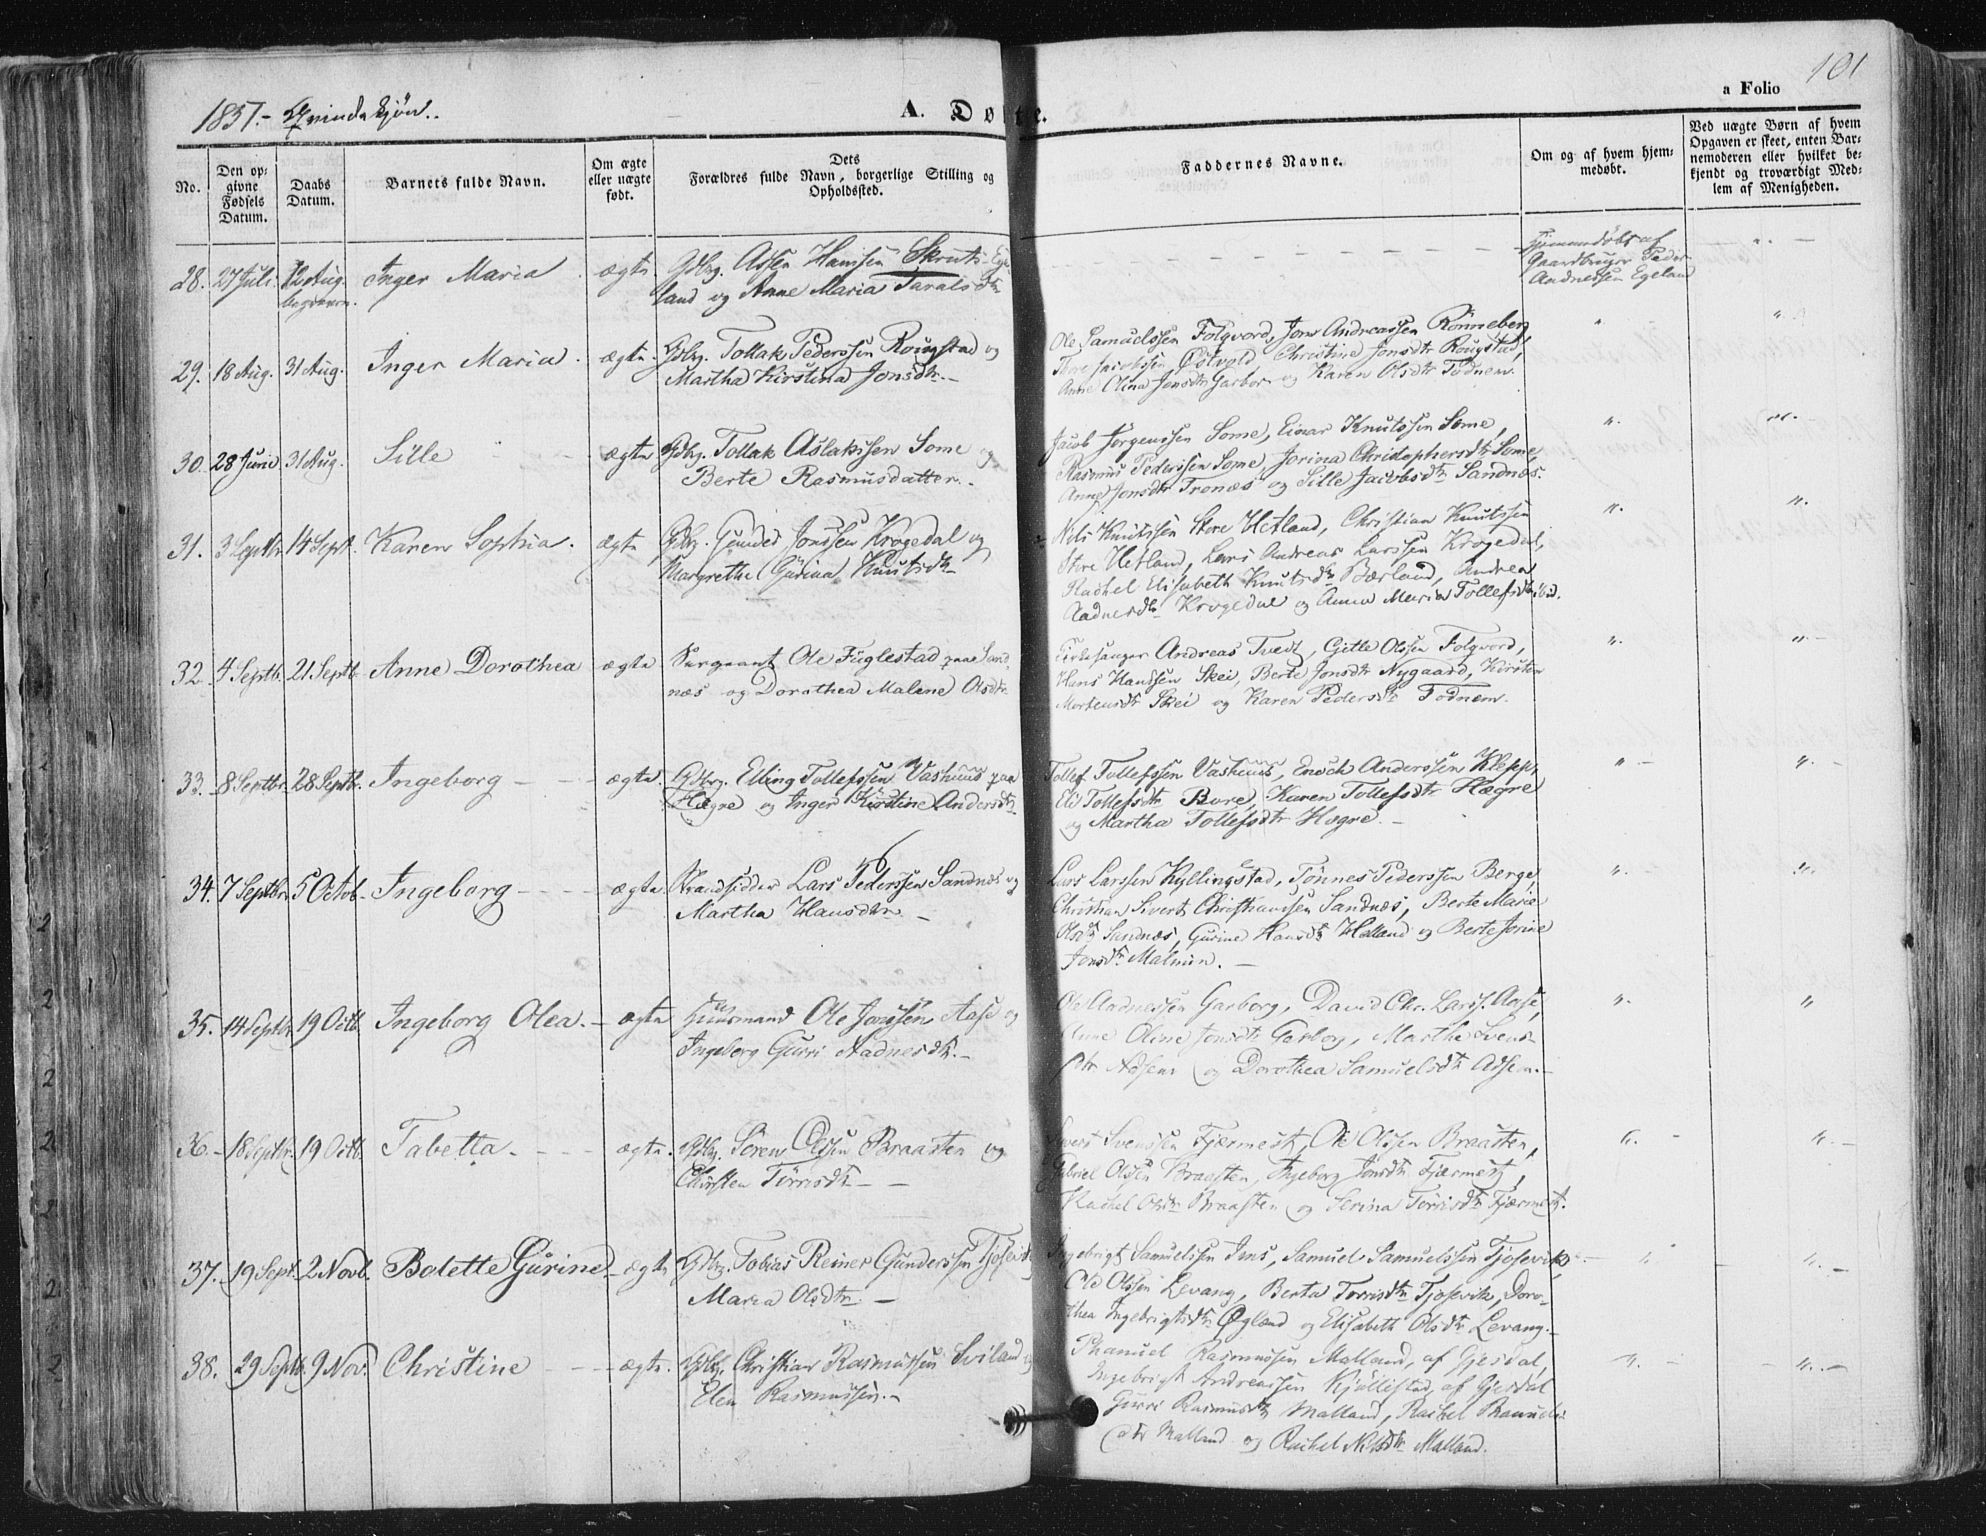 101
1857.- Qvindekjön.
A. Døbte.
a Folio
No.
Den op-
givne
Fødsels
Datum.
Daabs
Datum.
Barnets fulde Navn.
Om ægte
eller uægte
født.
Dets
Forældres fulde Navn, borgerlige Stilling og
Opholdssted.
Faddernes Navne.
Om og af hvem hjem-
medøbt.
Ved uægte Børn af hvem
Opgaven er skeet, enten Bar-
nemoderen eller hvilket be-
kjendt og troværdigt Med-
lem af Menigheden.
28. 27 Juli. 12 Aug. Inger Maria ægte Gdbrg. Hansen Skruts-Ege-
begraven. land og Anne Maria Taralsdtr
Hjemmedøbt af
Gaardbruger Peder
Andreassen Egeland
29. 18 Aug. 31 Aug. Inger Maria. ægte. Gdbrg. Tollak Pederssen Rougstad og
Martha Kirstina Jonsdtr.-
Ole Samuelssen Folgvord, Jon Andreassen Rönneberg
Tore Jacobssen Østvold, Christine Jonsdtr Rougstad,
Anne Olina Jonsdtr Garbor og Karen Olsdtr Todnem.
30. 28 Juni 31 Aug. Sille ægte Gdbrg. Tollak Aslakssen Some og
Berte Rasmusdatter.
Jacob Jörgenssen Some, Einar Knutssen Some,
Rasmus Pederssen Some, Jorina Christophersdtr Some,
Anne Jonsdtr Tronæs og Sille Jacobsdtr Sandnæs.
31. 3 Septbr 14 Sept. Karen Sophia. ægte Gdbrg. Jonssen Krogedal og
Margrethe Gurina Knutsdtr
Nils Knutssen Store Hetland, Christian Knutssen
Store Hetland, Lars Andreas Larssen Krogedal,
Rachel Elisabeth Knutsdtr Bærland, Andrea
Aadnesdtr Krogedal og Anna Maria Tollefsdtr ibid.
32. 4 Septb. 21 Septb Anne Dorothea ægte Sergeant Ole Fuglestad paa Sand-
næs og Dorothea Malene Olsdtr
Kirkesanger Andreas Tvedt, Gitle Olssen Folgvord,
Hans Hanssen Skei, Berte Jonsdtr Nygaard, Kirsten
Mortensdtr Skei og Karen Pedersdtr Todnem.
33. 8 Septbr 28 Septbr. Ingeborg ægte. Gdbrg. Elling Tollefssen Vashuus paa
Hægre og Inger Kirstine Andersdtr
Tollef Tollefssen Vashuus, Enoch Anderssen Klepp,
Eli Tollefsdtr Bore, Karen Tollefsdtr Hægre
og Martha Tollefsdtr Hogre.
34. 7 Septbr. 5 Octob. Ingeborg ægte. Strandsidder Lars Pederssen Sandnæs og
Martha Hansdtr
Lars Larssen Kyllingstad, Tönnes Pederssen Berge,
Christian Sivert Christianssen Sandnæs, Berte Marie
Olsdtr Sandnæs, Gurine Hansdtr Hetland og Berte Jorine
Jonsdtr Malmin.
35. 14 Septbr. 19 Octb. Ingeborg Olea. ægte Huusmand Ole Jonssen Aase og
Ingeborg Gurri Aadnesdtr.
Ole Aadnessen Garborg, David Chr. Larss. Aase,
Anne Oline Jonsdtr Garborg, Marthe Svens-
dtr og Dorothea Samuelsdtr
36. 18 Septbr. 19 Octb. Tabetta. ægte. Gdbrg. Sören Olssen Braasten og
Chirsten Törrisdtr
Sivert Svenssen Fjærmest, Ole Olssen Braasten,
Gabriel Olssen Braasten, Ingeborg Jonsdtr Fjærmest,
Rachel Olsdtr Braasten og Serina Törrisdtr Fjærmest.
37. 19 Sept. 2 Novb. Bolette Gurine ægte Gdbrg. Tobias Reiner Gunderssen Tjosevik
Maria Olsdtr.
Ingebrigt Samuelssen Ims, Samuel Samuelssen Tjosevik,
Ole Olssen Levang, Berta Torrisdtr Tjosevik, Doro-
thea Ingebrigtsdtr Øglænd og Elisabeth Olsdtr Levang.
38. 29 Septb. 9 Nov. Christine ægte. Gdbrg Christian Rasmussen Sviland og
Elen Rasmussen.-
Phanuel Rasmussen Malland, af Gjesdal,
Ingebrigt Andreassen Kjöllestad, af Gjesdal
Gurri Rasmusdtr Malland, Rachel Phanuels-
dtr Malland og Rachel Nilsdtr Malland.